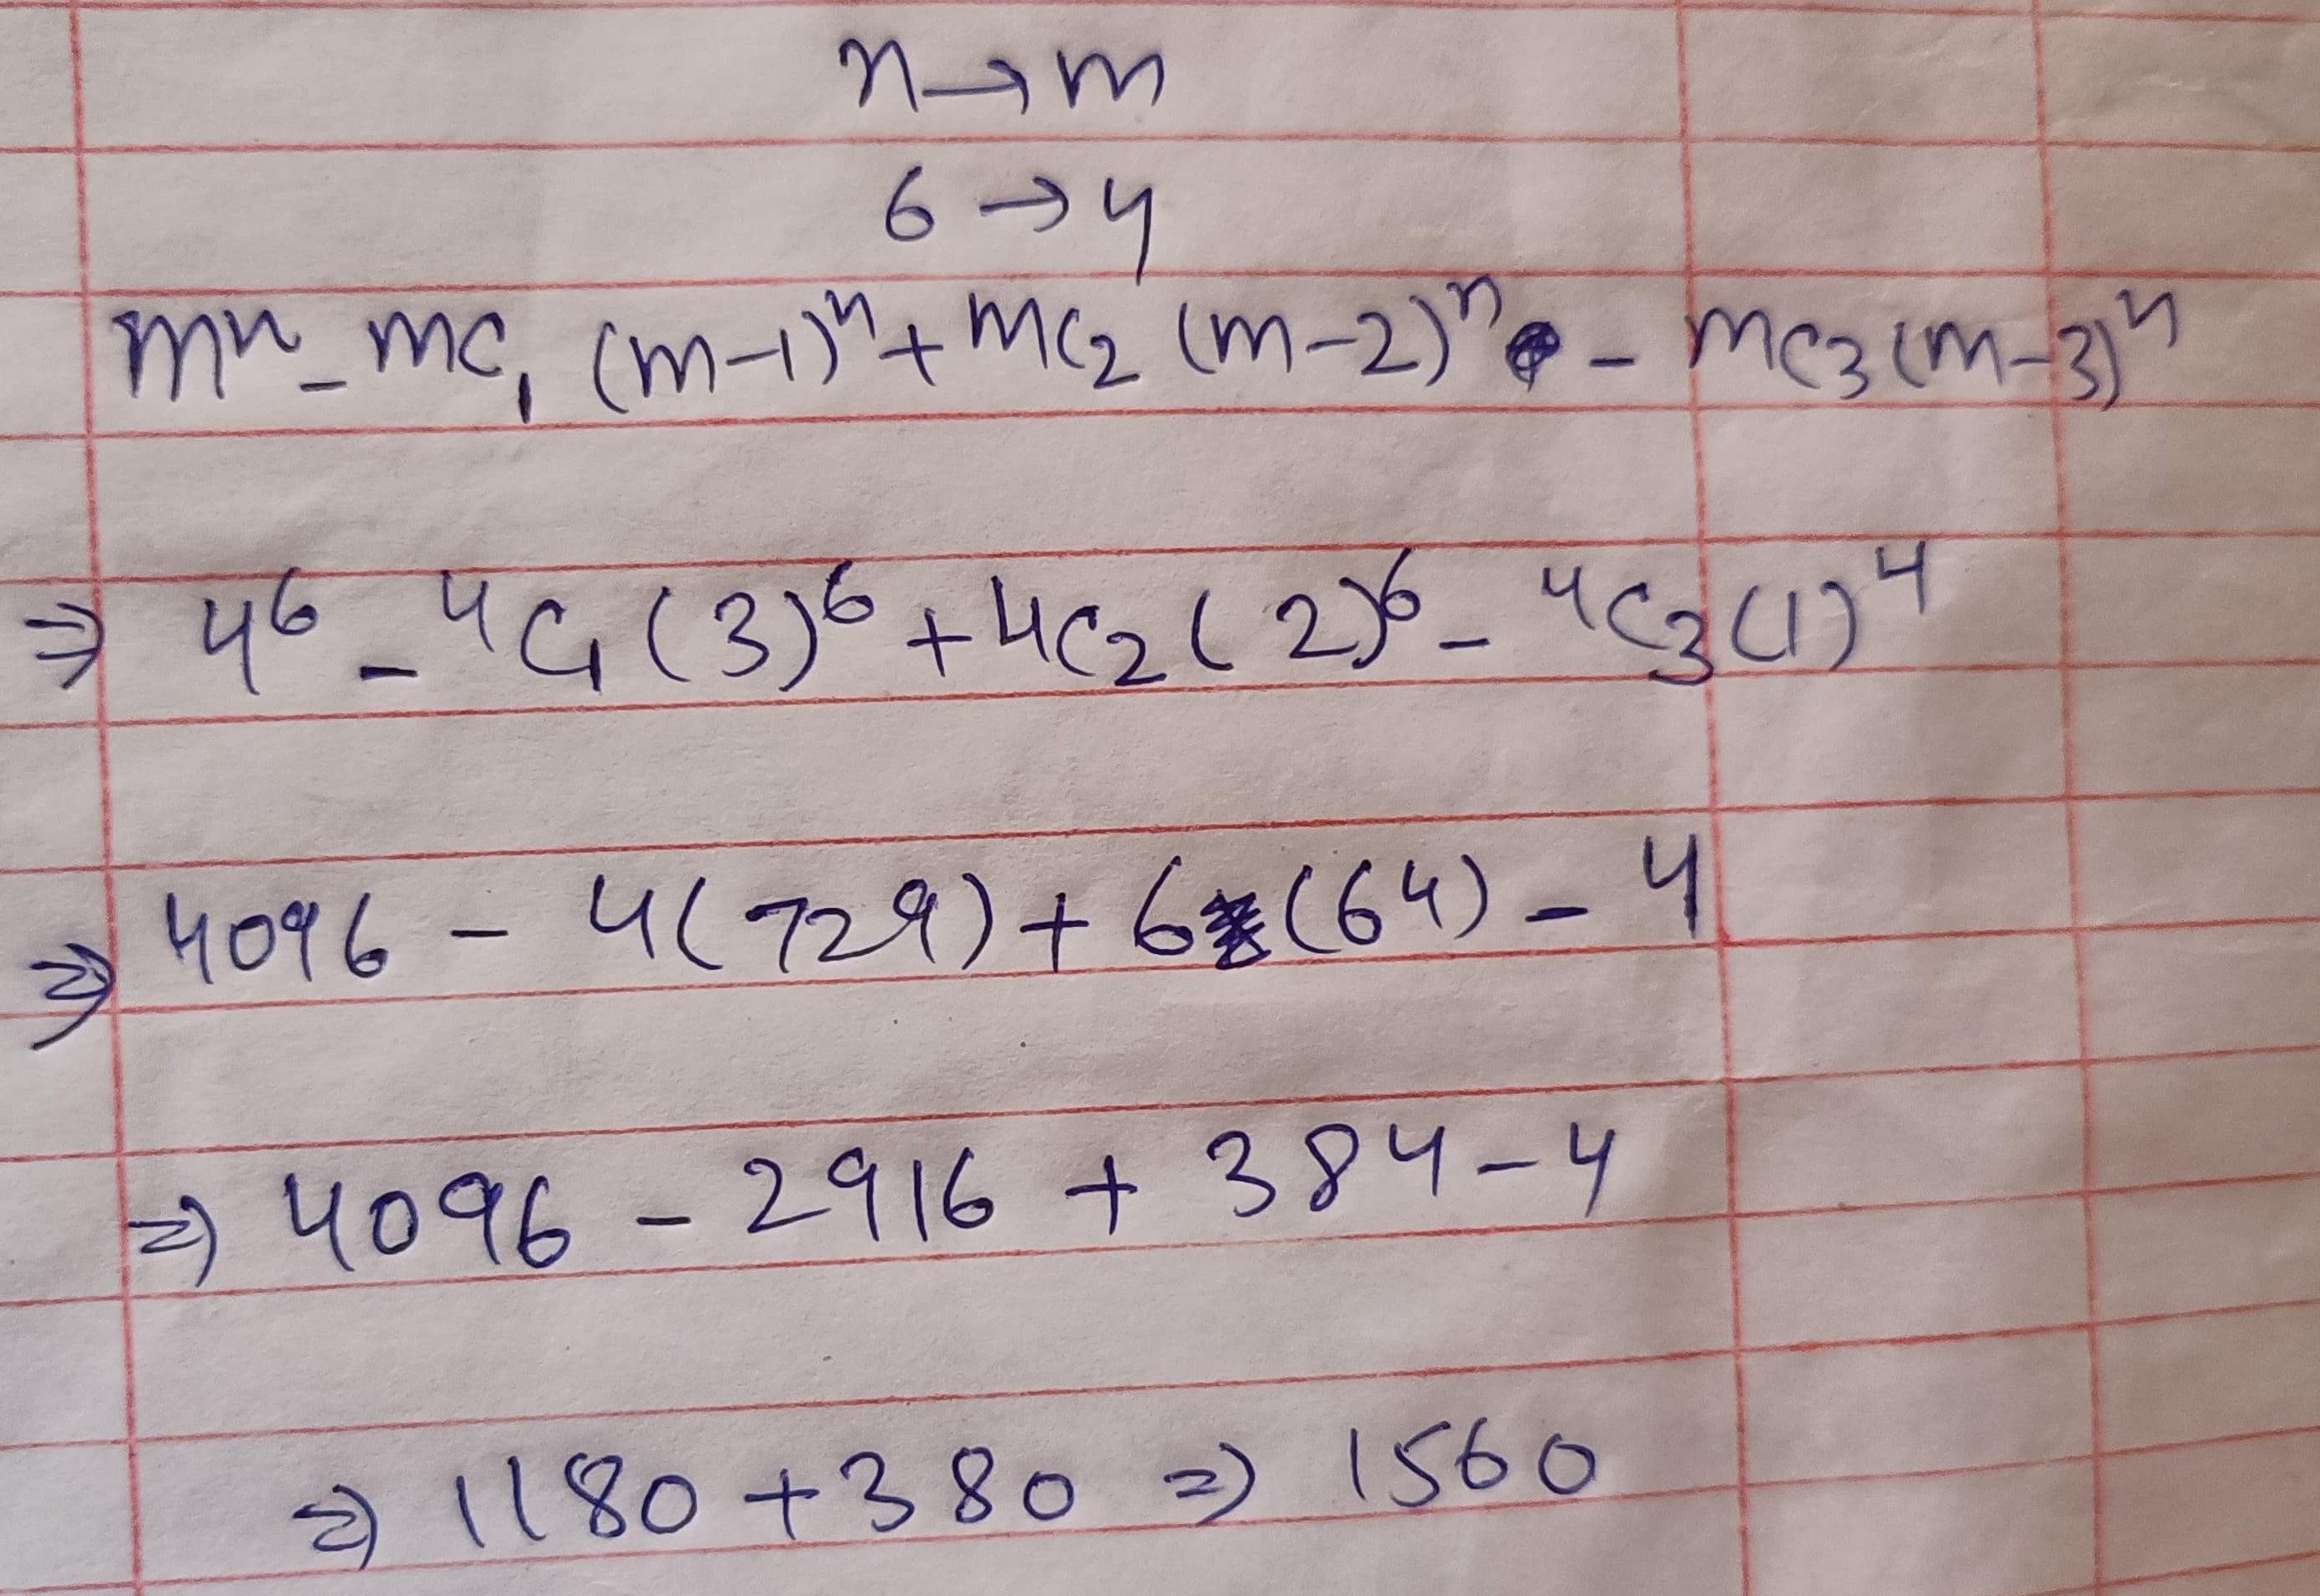 n→m
6→4
mⁿ - mc₁ (m-1)ⁿ + mc₂ (m-2)ⁿ - mc₃ (m-3)ⁿ
⇒ 4⁶ - ⁴C₁ (3)⁶ + 4C₂ (2)⁶ - ⁴C₃ (1)⁴
⇒ 4096 - 4(729) + 6(64) - 4
⇒ 4096 - 2916 + 384 - 4
⇒ 1180 + 380 ⇒ 1560